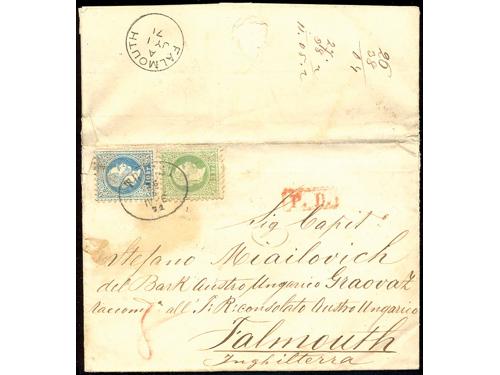 FALMOUTH
A
JY 1
71
P.D.
Sig Capit.
Stefano Miailovich
del Bark Austro Ungarico Graovaz
all' I: R: consolato Austro Ungarico
Falmouth
Inghilterra